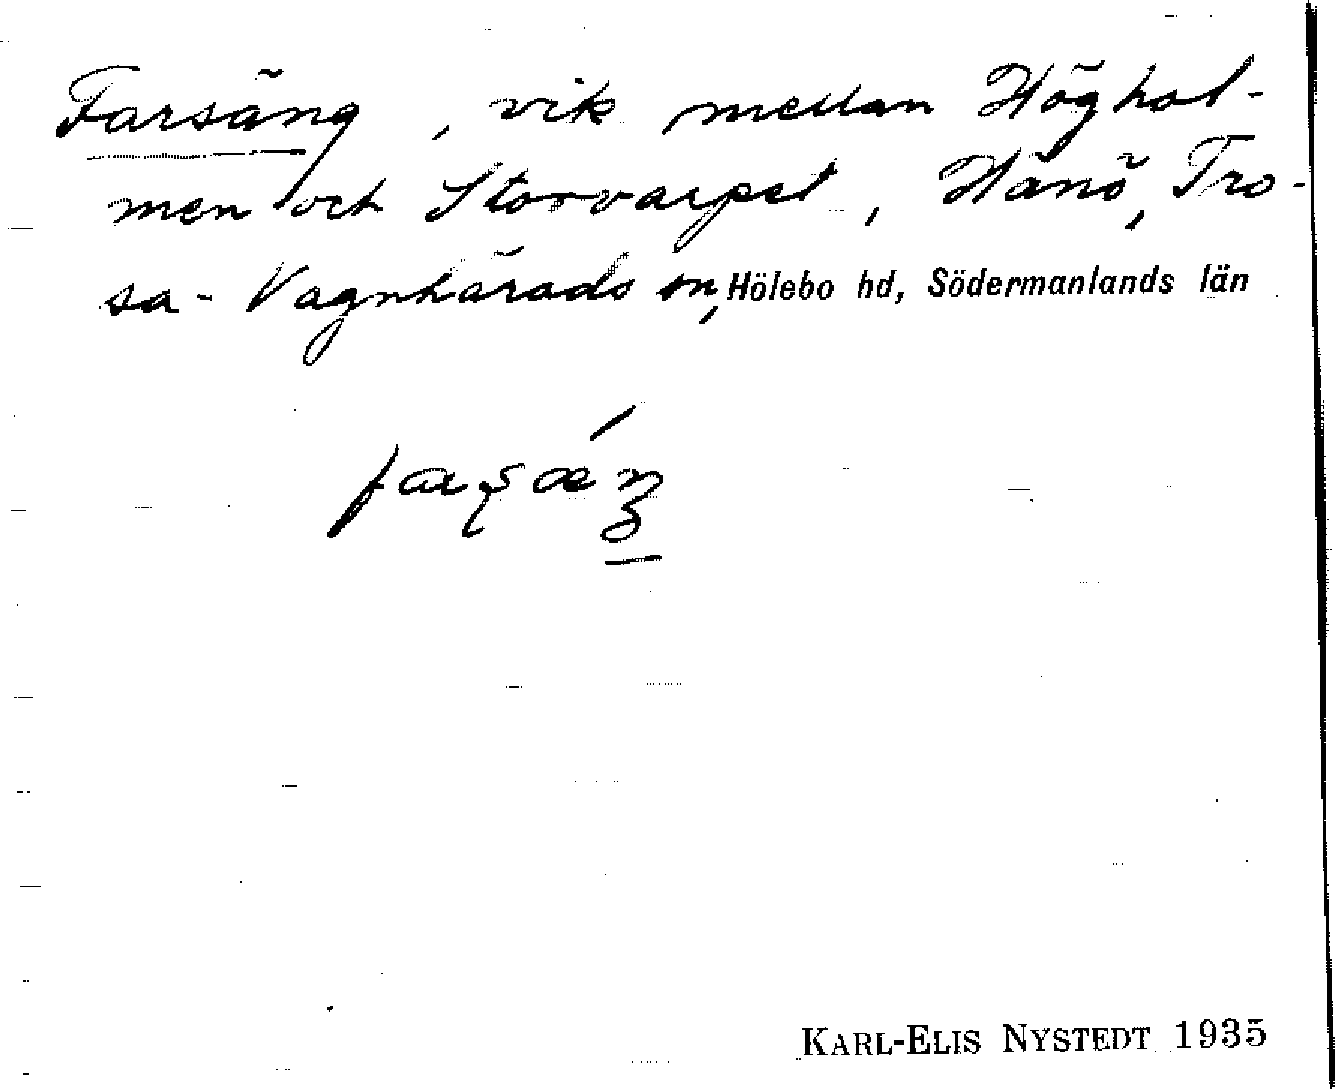 Farsäng, vik mellan Höghol-
men och Storvarpet, Hånö, Tro-
sa-Vagnhärads sn, Hölebo hd, Södermanlands län
KARL-ELIS NYSTEDT 1935